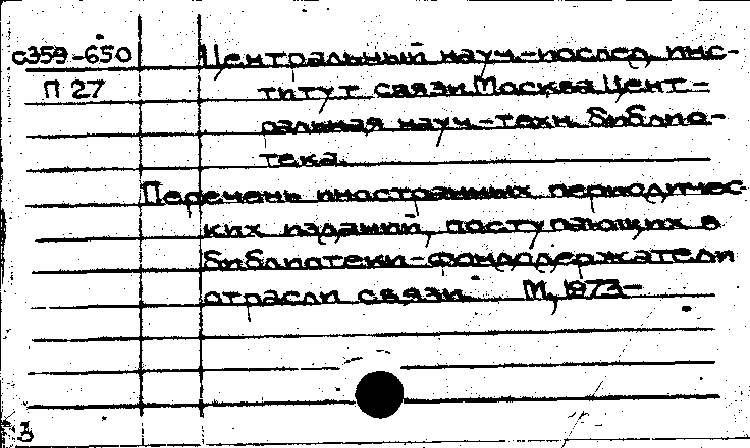 с359-650 Центральный науч.-послед. инс-
П 27 титут связи. Москва. Цент-
ральная науч.-техн. библио-
тека.
Перечень иностранных периодичес-
ких изданий, поступающих в
библиотеки-фондодержатели
отрасли связи. М., 1973-
3